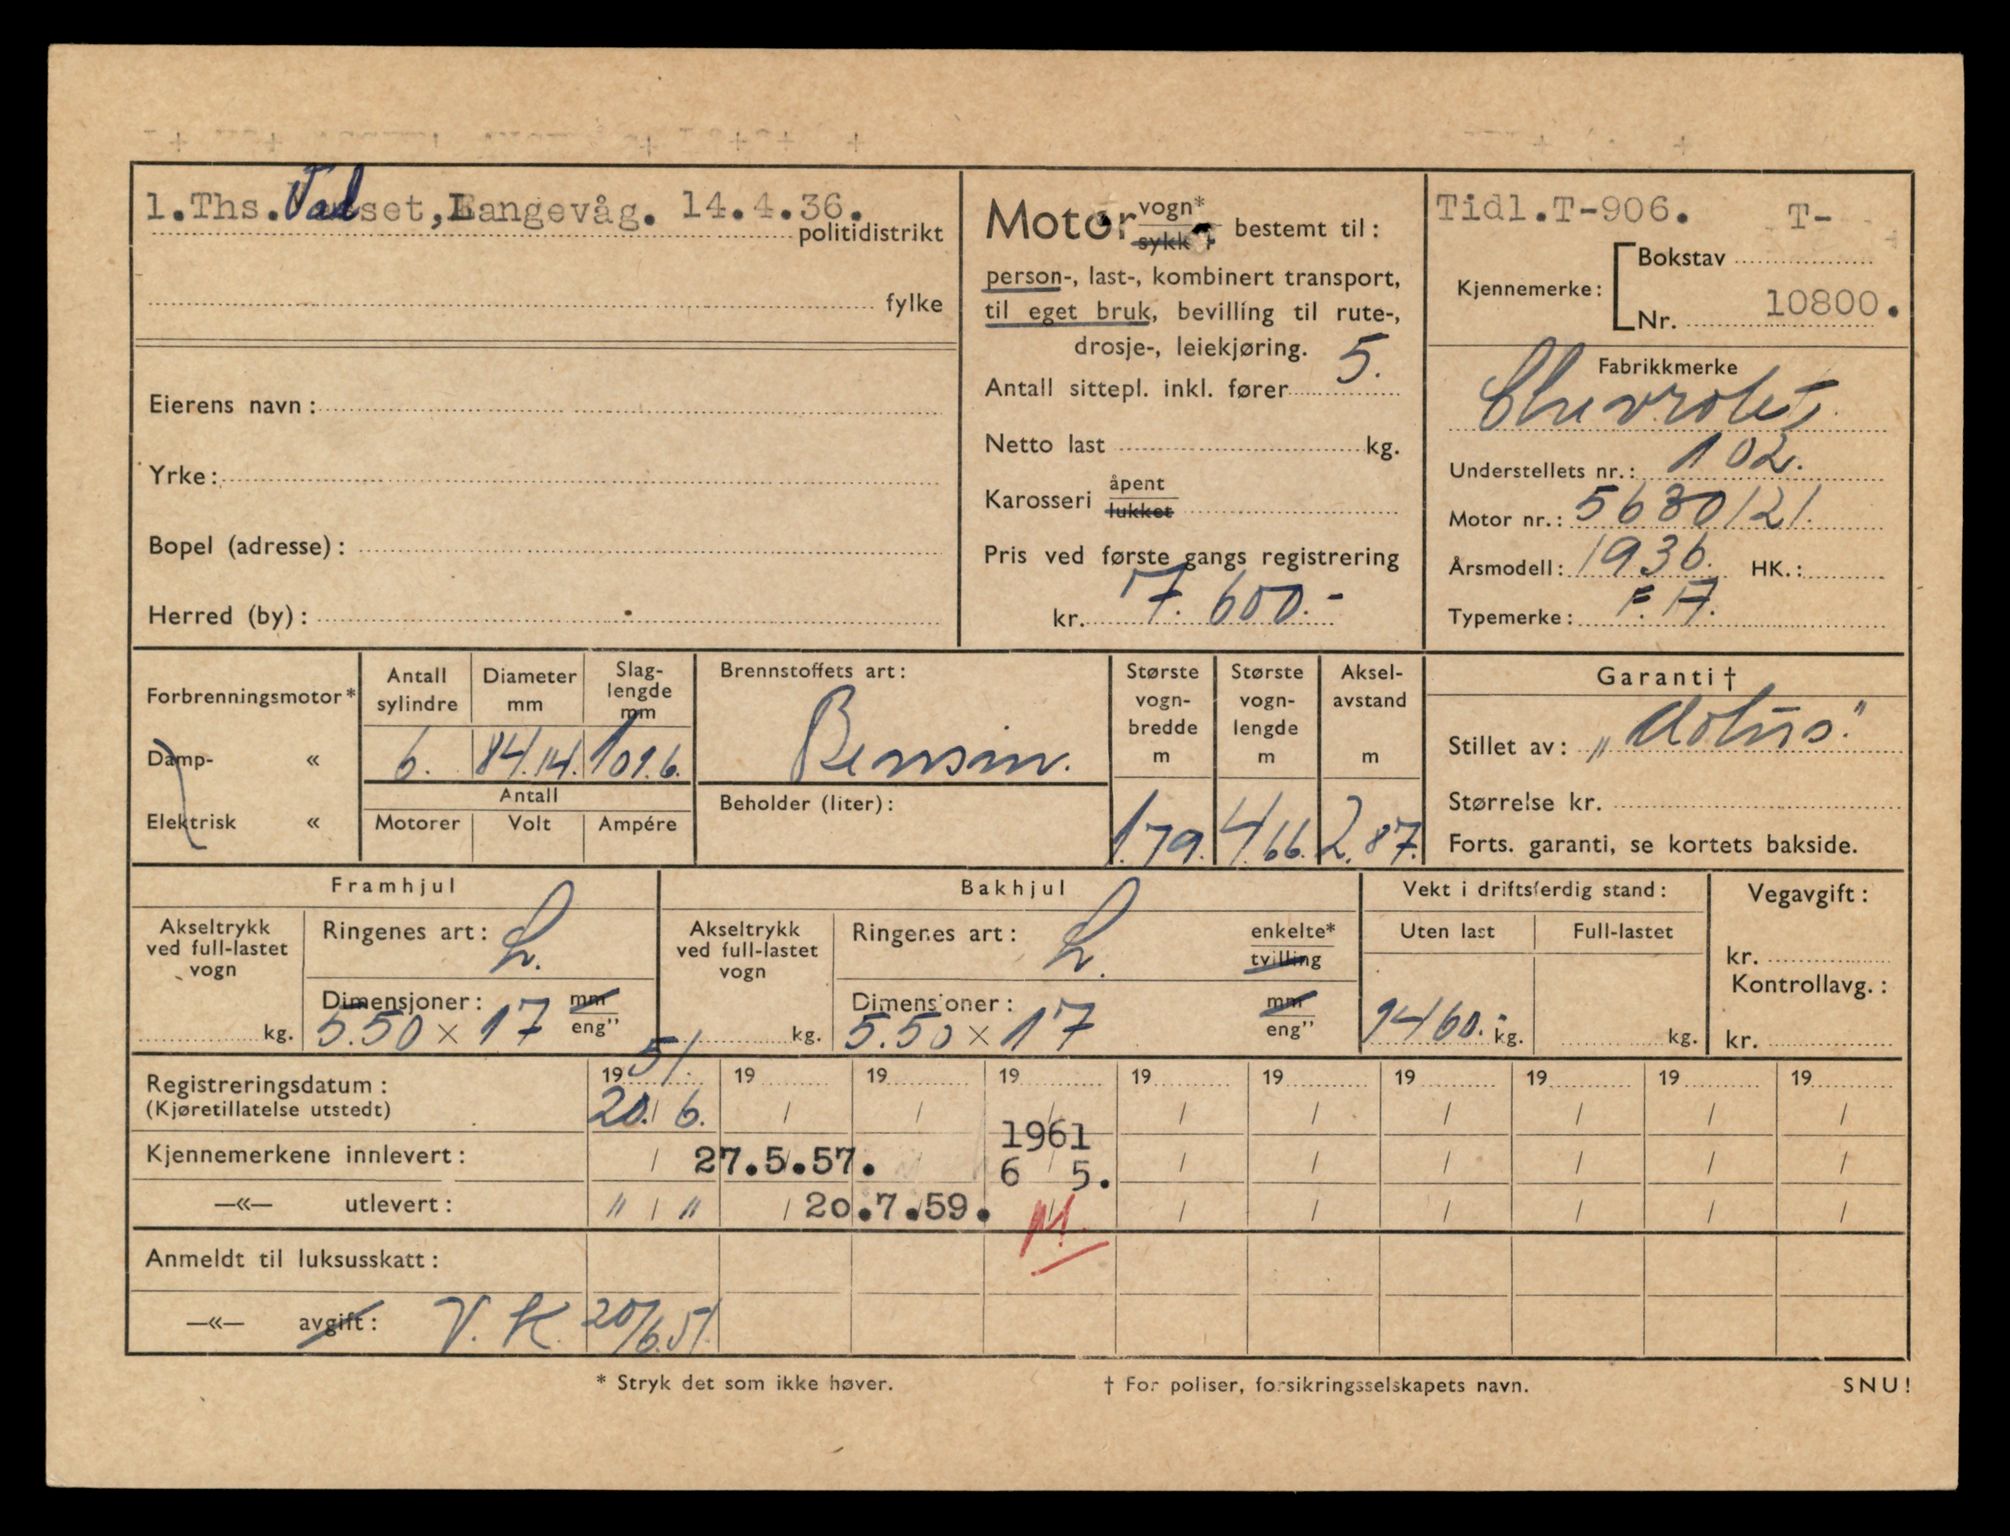 1.Ths. Valset, Langevåg. 14.4.36.
politidistrikt
fylke
Eierens navn:
Yrke:
Bopel (adresse):
Herred (by):
Motor vogn* sykkel bestemt til:
person-, last-, kombinert transport,
til eget bruk, bevilling til rute-,
drosje-, leiekjøring.
Antall sittepl. inkl. fører 5.
Netto last kg.
Karosseri åpent lukket
Pris ved første gangs registrering
kr. 7.600.-
Tidl.T-906. T-
Kjennemerke: Bokstav
Nr. 10800.
Fabrikkmerke
Chevrolet
Understellets nr.: 102.
Motor nr.: 5630121.
Årsmodell: 1936. HK.:
Typemerke: F.A.
Forbrenningsmotor*
Damp- «
Elektrisk «
Antall sylindre Diameter mm Slag-lengde mm
6. 84.14. 101.6.
Antall
Motorer Volt Ampére
Brennstoffets art:
Bensin.
Beholder (liter):
Største vogn-bredde m
1.79.
Største vogn-lengde m
4.66.
Aksel-avstand m
2.87.
Garanti †
Stillet av:
Størrelse kr.
Forts. garanti, se kortets bakside.
Framhjul
Akseltrykk ved full-lastet vogn
kg.
Ringenes art: L.
Dimensjoner: mm
5.50 × 17 eng"
Bakhjul
Akseltrykk ved full-lastet vogn
kg.
Ringenes art: L. enkelte* tvilling
Dimensjoner: mm
5.50 × 17 eng"
Vekt i driftsferdig stand:
Uten last Full-lastet
1460.- kg. kg.
Vegavgift:
kr.
Kontrollavg.:
kr.
Registreringsdatum: 19 51. 19 19 19 19 19 19 19 19 19
(Kjøretillatelse utstedt) 20. / 6. / / / / / / / / /
1961
Kjennemerkene innlevert: / 27.5.57. 6 / 5. / / / / / /
—«— utlevert: " / " / 20.7.59. M. / / / / / /
Anmeldt til luksusskatt:
—«— avgift: V. K. 20/6.51.
* Stryk det som ikke høver. † For poliser, forsikringsselskapets navn. SNU!